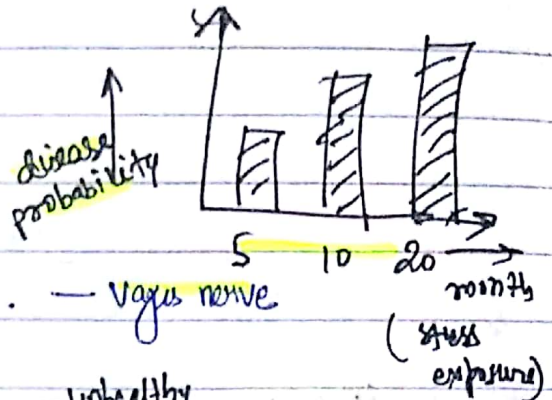 disease
probability
5 10 20 → month
(stress
exposure)
— Vagus nerve
unhealthy